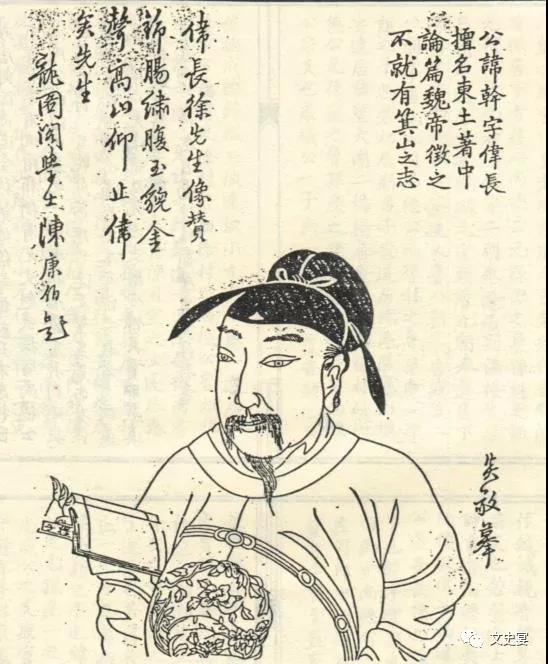 公諱幹字偉長
擅名東土著中
論篇魏帝徵之
不就有箕山之志
偉長徐先生像贊
錦腸繡腹玉貌金
聲高山仰止偉
矣先生
龍圖閣學士陳康伯題
敬摹
文史宴